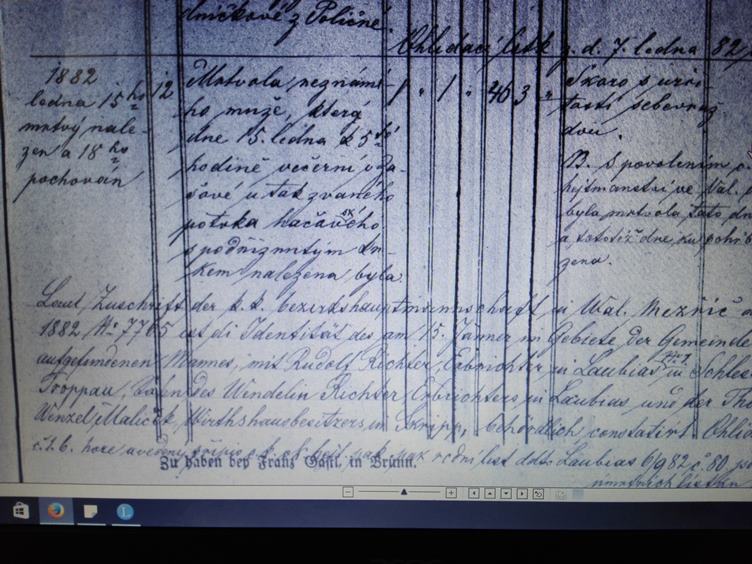 dničkové z Poličné
Ohlidací lístk z. d. 7. ledna 82
1882
ledna 15ho
mrtvý nale-
zen a 18ho
pochován
12
Mrtvola neznámé-
ho muže, který
dne 15. ledna k 5té
hodině večerní
u tak zvaného
potoka
s podříznutým kr-
kem nalezena byla.
1 " 1 " 40 3 "
Skoro s urči-
tostí sebevraž
dou.
N. S povolením
hejtmanství ve Val.
byla mrtvola tato
a tototiž dne ku pohřb
zena.
Laut Zuschrift der k. k. bezirkshauptmannschaft in Wal. Mezřič
1882 No 7765 ist die Identität des am 15. Jänner im Gebiete der Gemeinde
aufgefundenen Mannes, mit Rudolf Richter, Erbrichter in Laubias in Schles
Troppau, Sohn des Wendelin Richter Erbrichters in Laubias und der
Wenzel Maliček, Wirthshausbesitzers in Skripp, behördlich constatirt
Zu haben bey Franz Gastl in Brünn.
list Laubias 6/9 82 č. 80